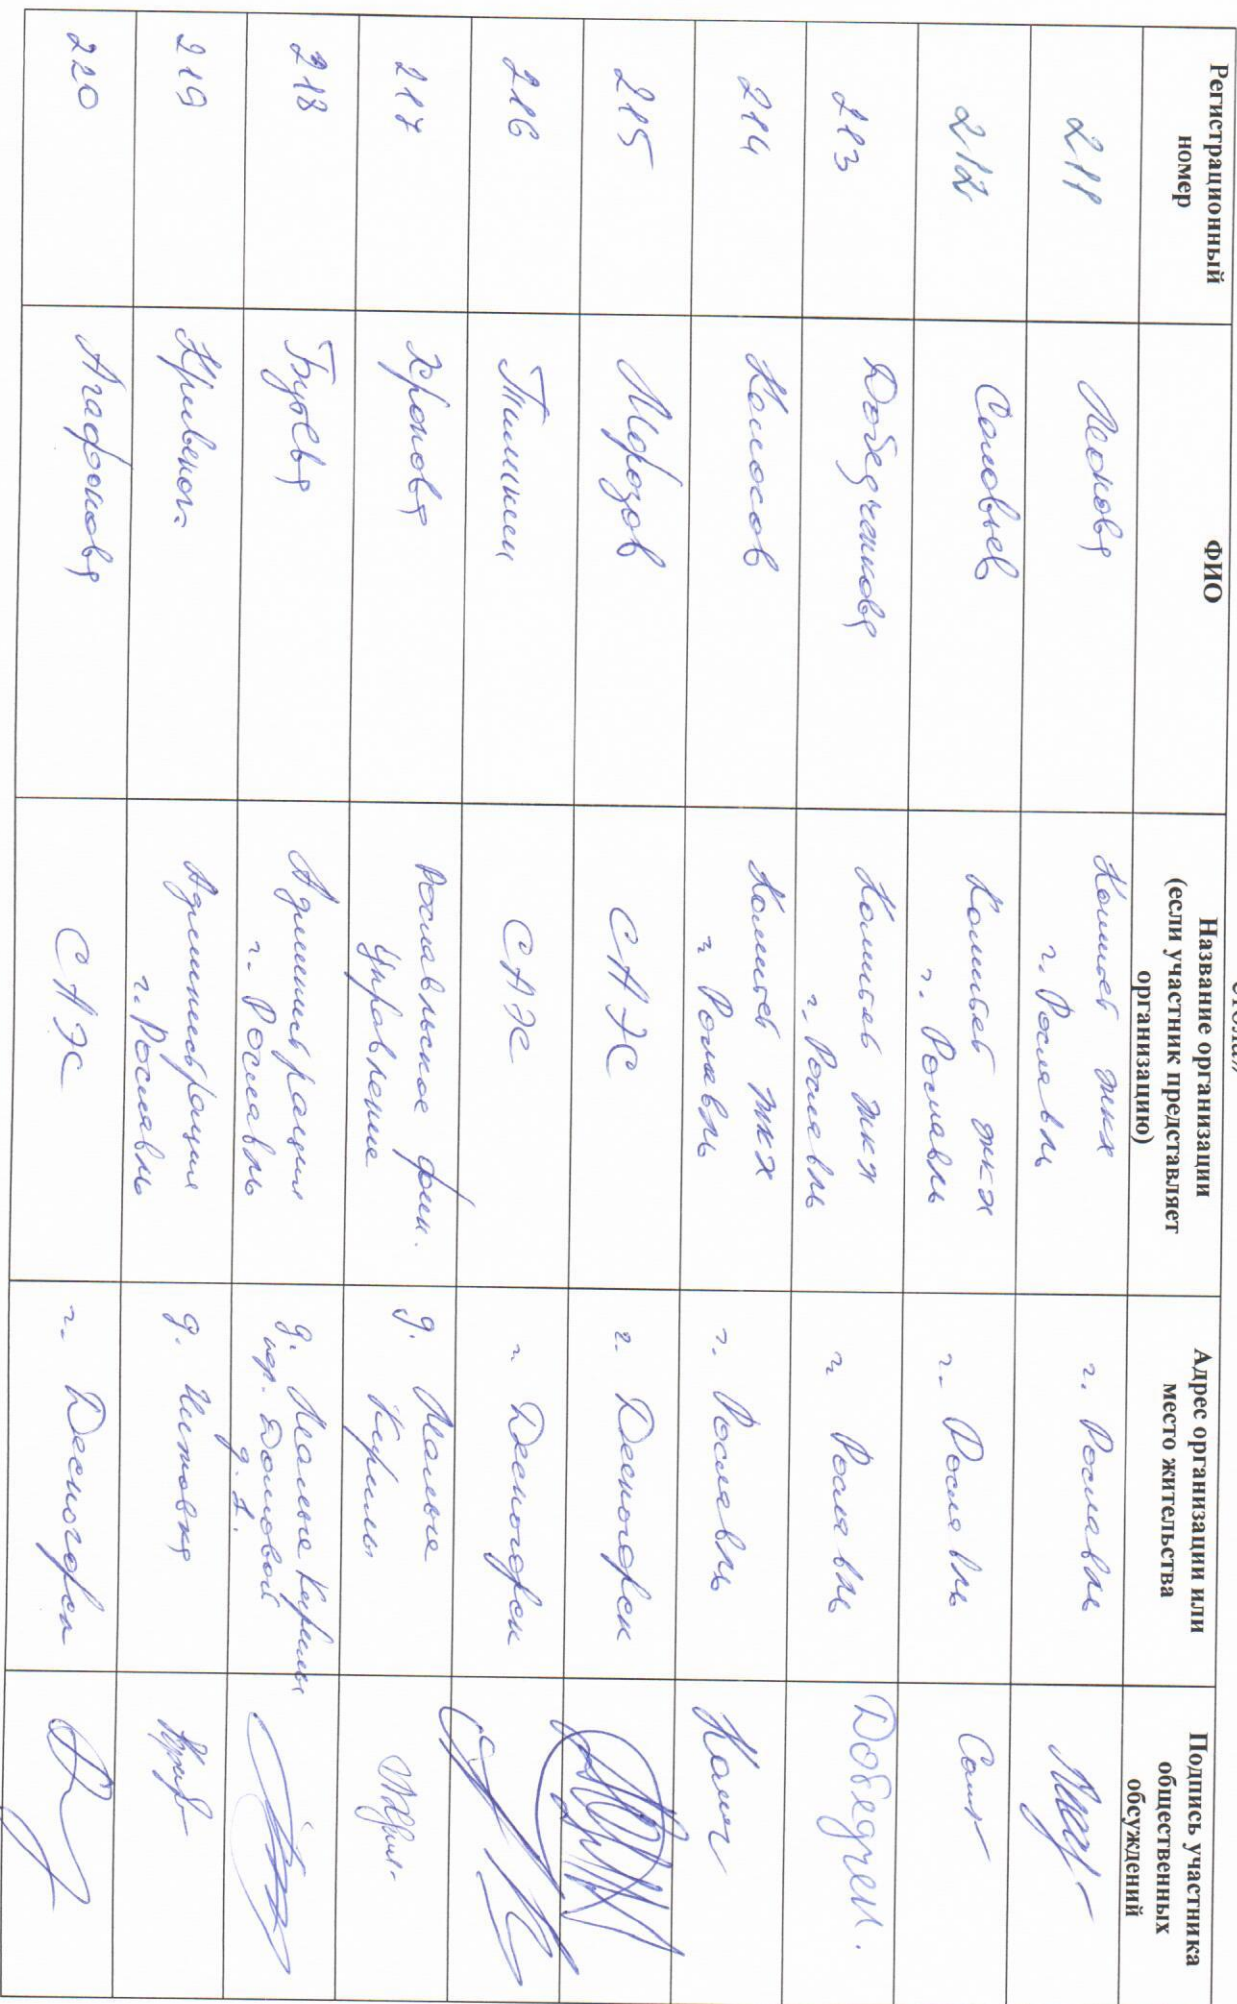 стола»
Регистрационный
номер
ФИО
Название организации
(если участник представляет
организацию)
Адрес организации или
место жительства
Подпись участника
общественных
обсуждений
211
Леонова
Комитет ЖКХ
г. Рославль
г. Рославль
212
Соловьев
Комитет ЖКХ
г. Рославль
г. Рославль
213
Добедченкова
Комитет ЖКХ
г. Рославль
г. Рославль
Добедчен.
214
Колосов
Комитет ЖКХ
г. Рославль
г. Рославль
215
Морозов
САЭС
г. Десногорск
216
Тимкин
САЭС
г. Десногорск
217
Хронова
Рославльское фин.
управление
д. Малые
Кириллы
218
Бурева
Администрация
г. Рославль
д. Малые Кириллы
пер. Домовой
д. 1.
219
Администрация
г. Рославль
д.
220
Агафонова
САЭС
г. Десногорск